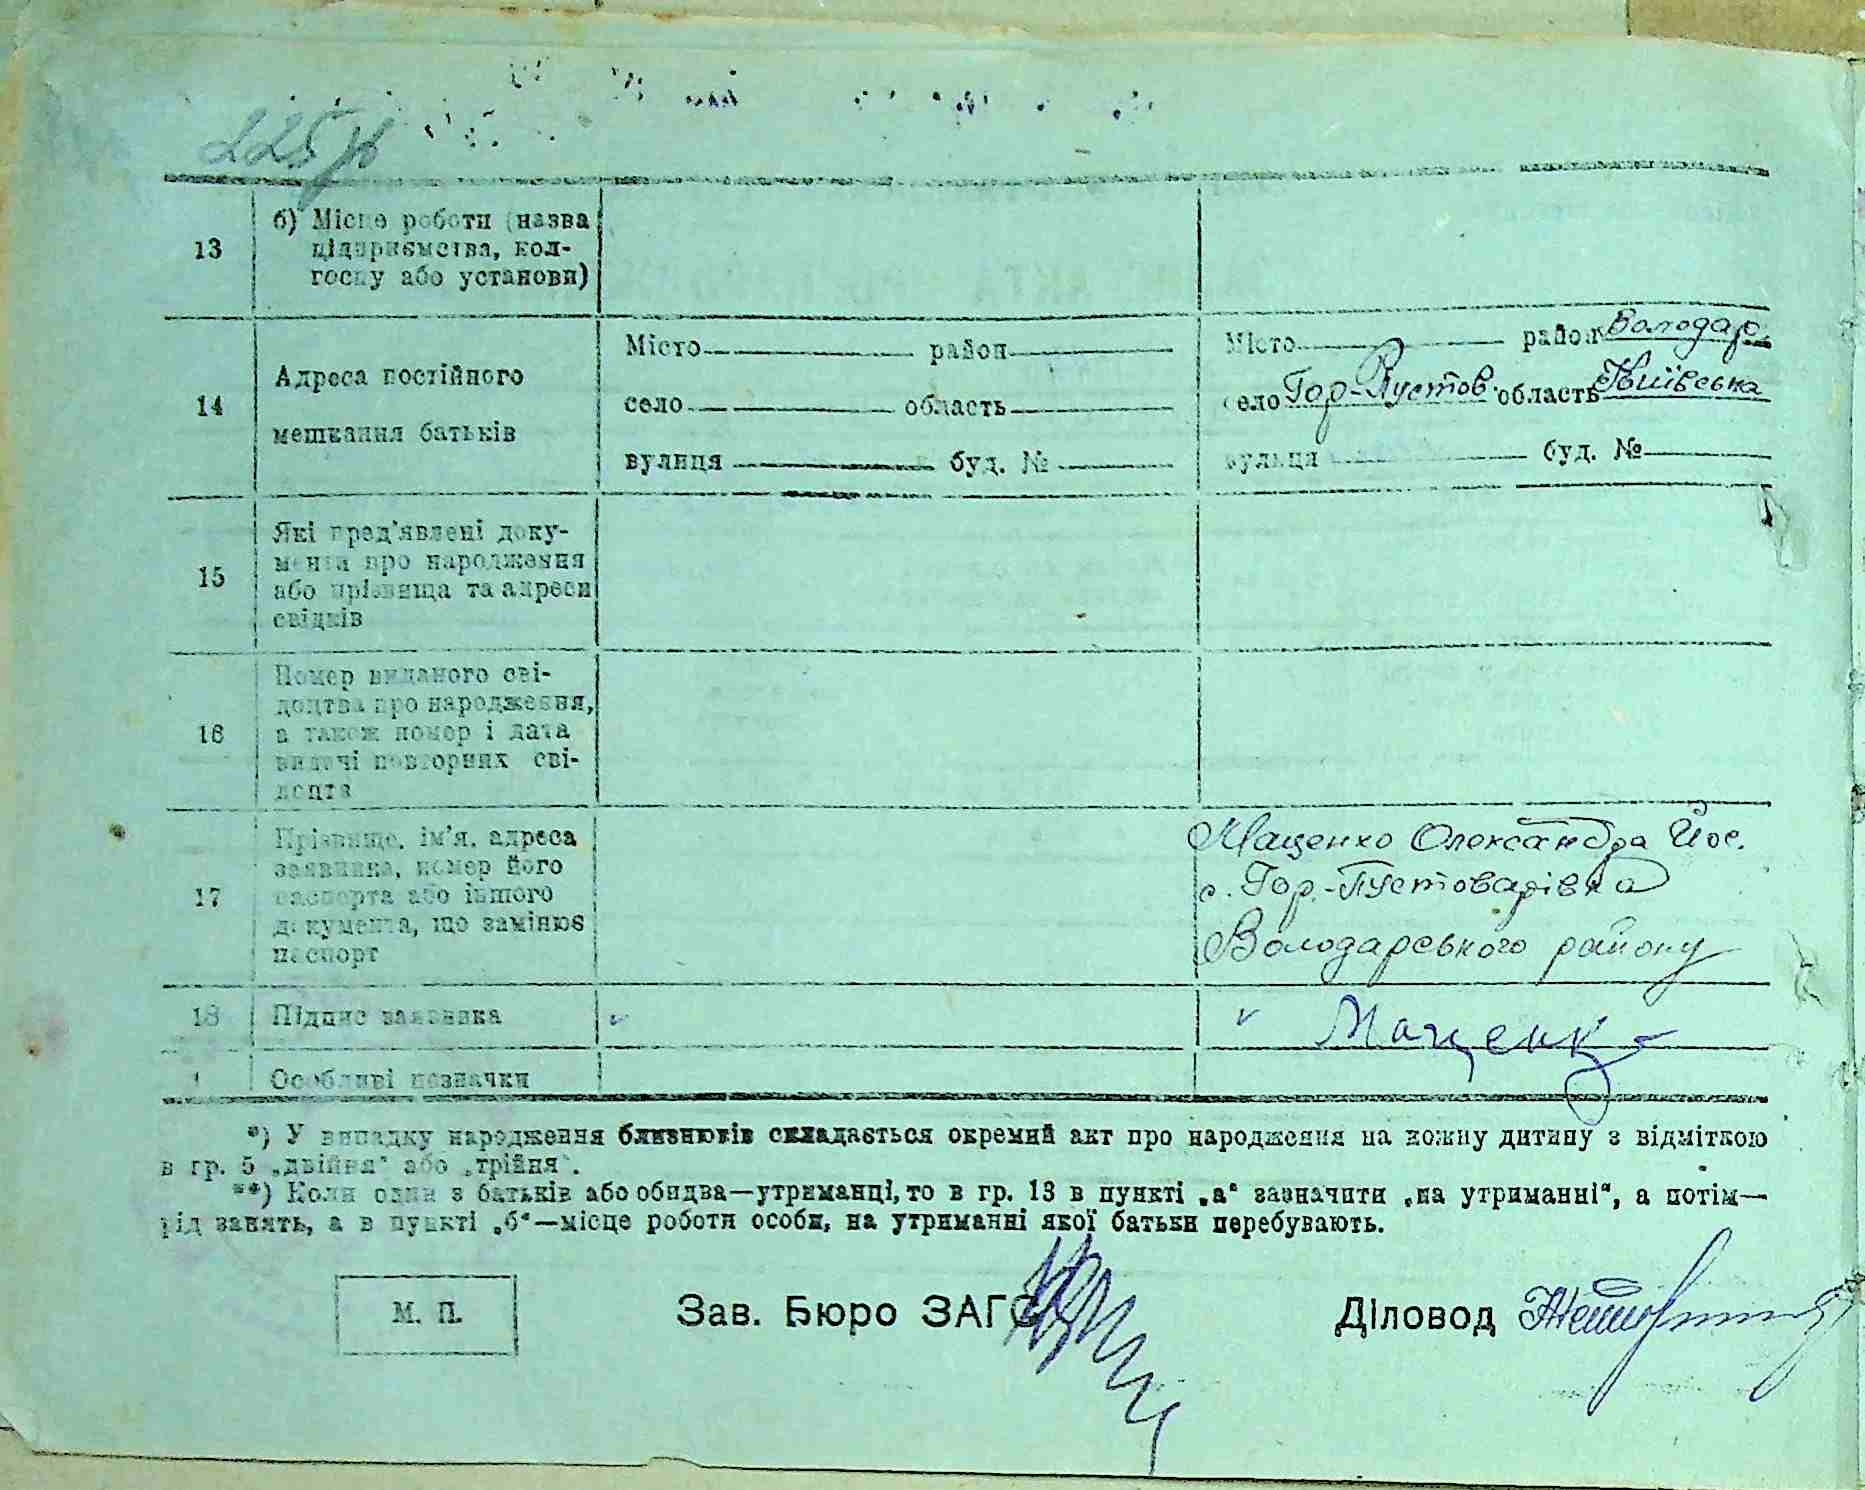 13
б) Місце роботи (назва
підприємства, кол-
госпу або установи)
14
Адреса постійного
мешкання батьків
Місто район
село область
вулиця буд. №
Місто район Володар.
село Гор-Пустов. область Київська
вулиця буд. №
15
Які пред'явлені доку-
менти про народження
або прізвища та адреси
свідків
16
Номер виданого сві-
доцтва про народження,
а також номер і дата
видачі повторних сві-
доцтв
17
Прізвище, ім'я, адреса
заявника, номер його
паспорта або іншого
документа, що замінює
паспорт
Маценко Олександра Йос.
с. Гор.-Пустоварівка
Володарського району
18
Підпис заявника
Маценко
Особливі позначки
*) У випадку народження близнюків складається окремий акт про народження на кожну дитину з відміткою
в гр. 5 „двійня" або „трійня".
**) Коли один з батьків або обидва—утриманці, то в гр. 13 в пункті „а" зазначити „на утриманні", а потім—
рід занять, а в пункті „б"—місце роботи особи, на утриманні якої батьки перебувають.
М. П.
Зав. Бюро ЗАГС
Діловод